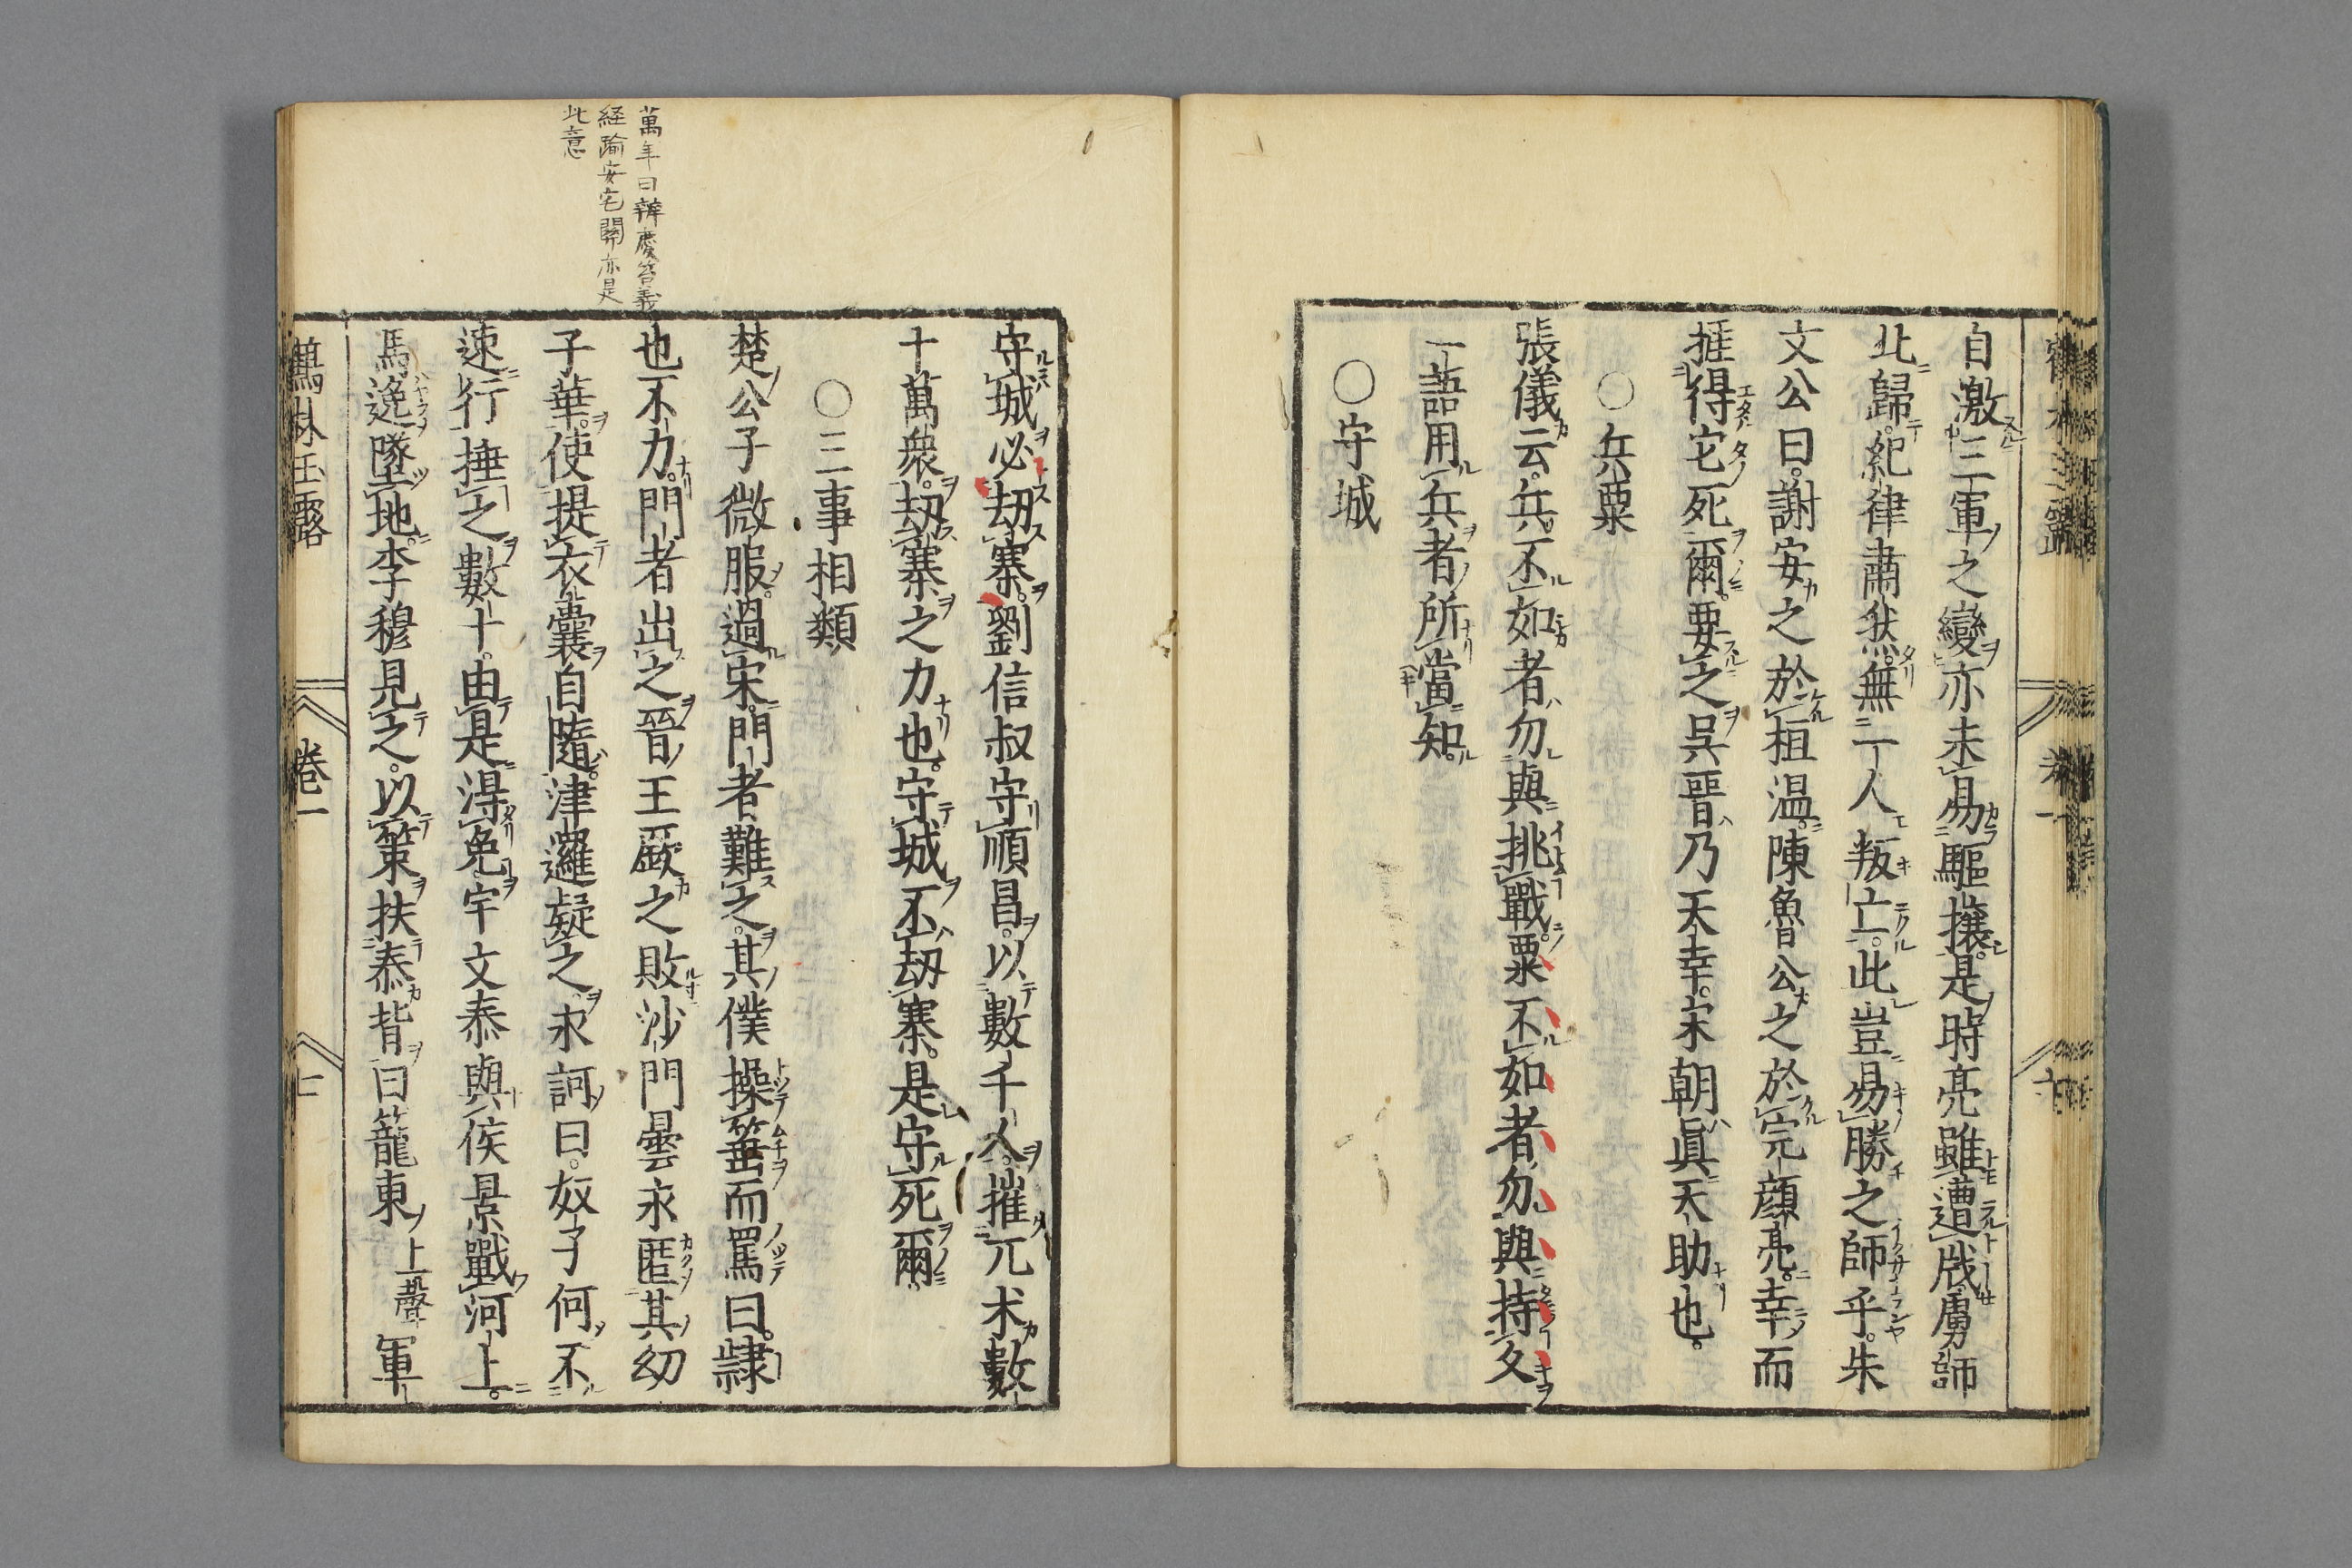 自激三軍之變亦未易驅攘是時亮雖遭戕虜師
北歸紀律肅然無一人叛亡此豈易勝之師乎朱
文公曰謝安之於桓温陳魯公之於完顔亮幸而
捱得它死爾要之吳晉乃天幸宋朝眞天助也
○兵粟
張儀云兵不如者勿與挑戰粟不如者勿與持久
一語用兵者所當知
○守城
守城必劫寨劉信叔守順昌以數千人摧兀术數
十萬衆劫寨之力也守城不劫寨是守死爾
○三事相類
楚公子微服過宋門者難之其僕操箠而罵曰隷
也不力門者出之晉王廞之敗沙門曇永匿其幼
子華使提衣囊自隨津邏疑之永訶曰奴子何不
速行捶之數十由是得免宇文泰與侯景戰河上
馬逸墜地李穆見之以策扶泰背曰籠東上聲軍
鶴林玉露 卷一 七
萬年曰辨慶笞義
経踰安宅關亦是
此意